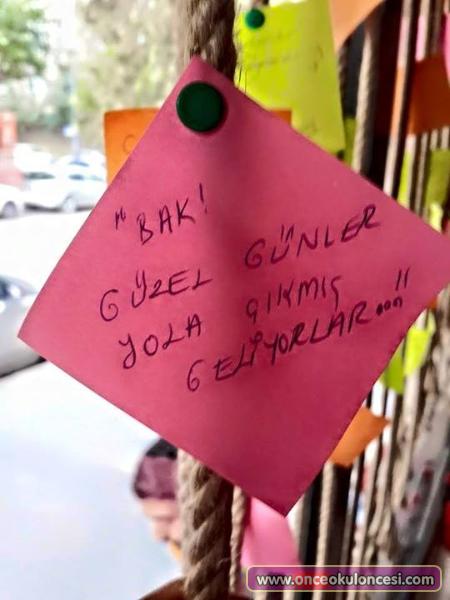 "BAK!
GÜZEL GÜNLER
YOLA ÇIKMIŞ
GELİYORLAR..."
www.onceokuloncesi.com